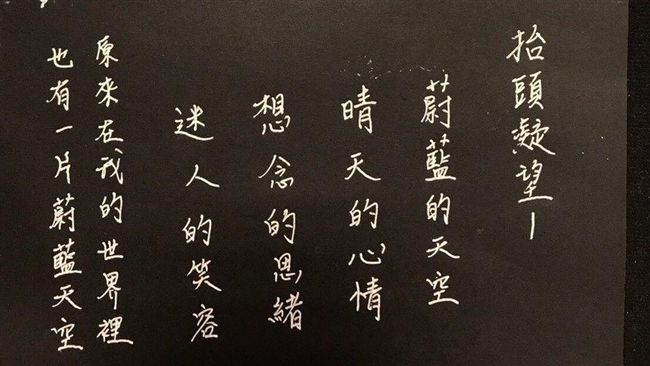 抬頭凝望－
蔚藍的天空
晴天的心情
想念的思緒
迷人的笑容
原來在我的世界裡
也有一片蔚藍天空